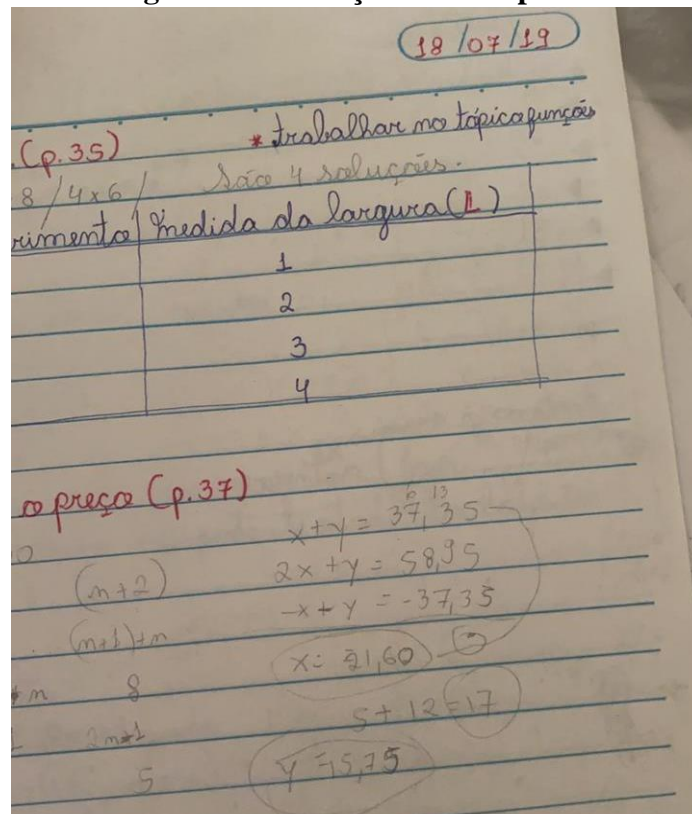 18/07/19
(p.35) * trabalhar no tópico funções
8 / 4x6 / São 4 soluções.
rimento Medida da largura (L)
1
2
3
4
o preço (p.37)
x+y = 37,35
(n+2) 2x+y = 58,95
(n+1)+n -x+y = -37,35
x= 21,60
n 8
5+12=17
5 y=15,75